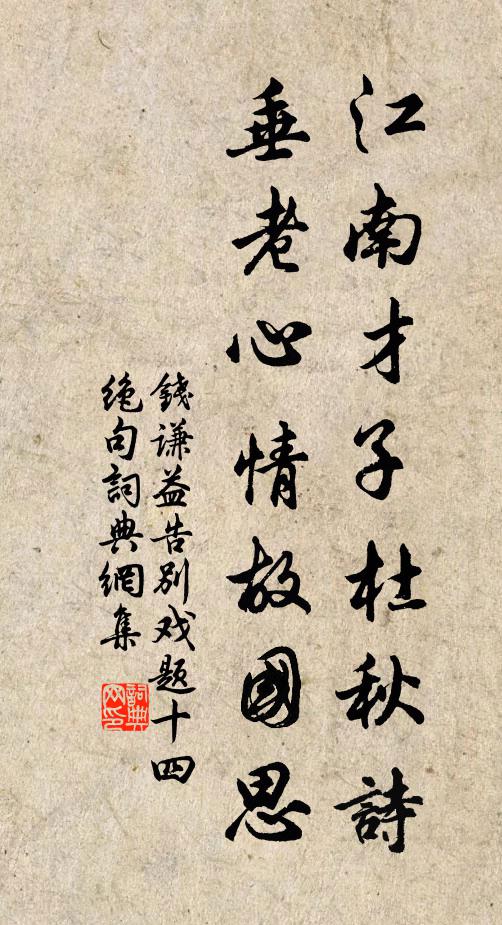 江南才子杜秋詩
垂老心情故國思
錢谦益告別戏题十四
绝句詞典網集
詞典网印